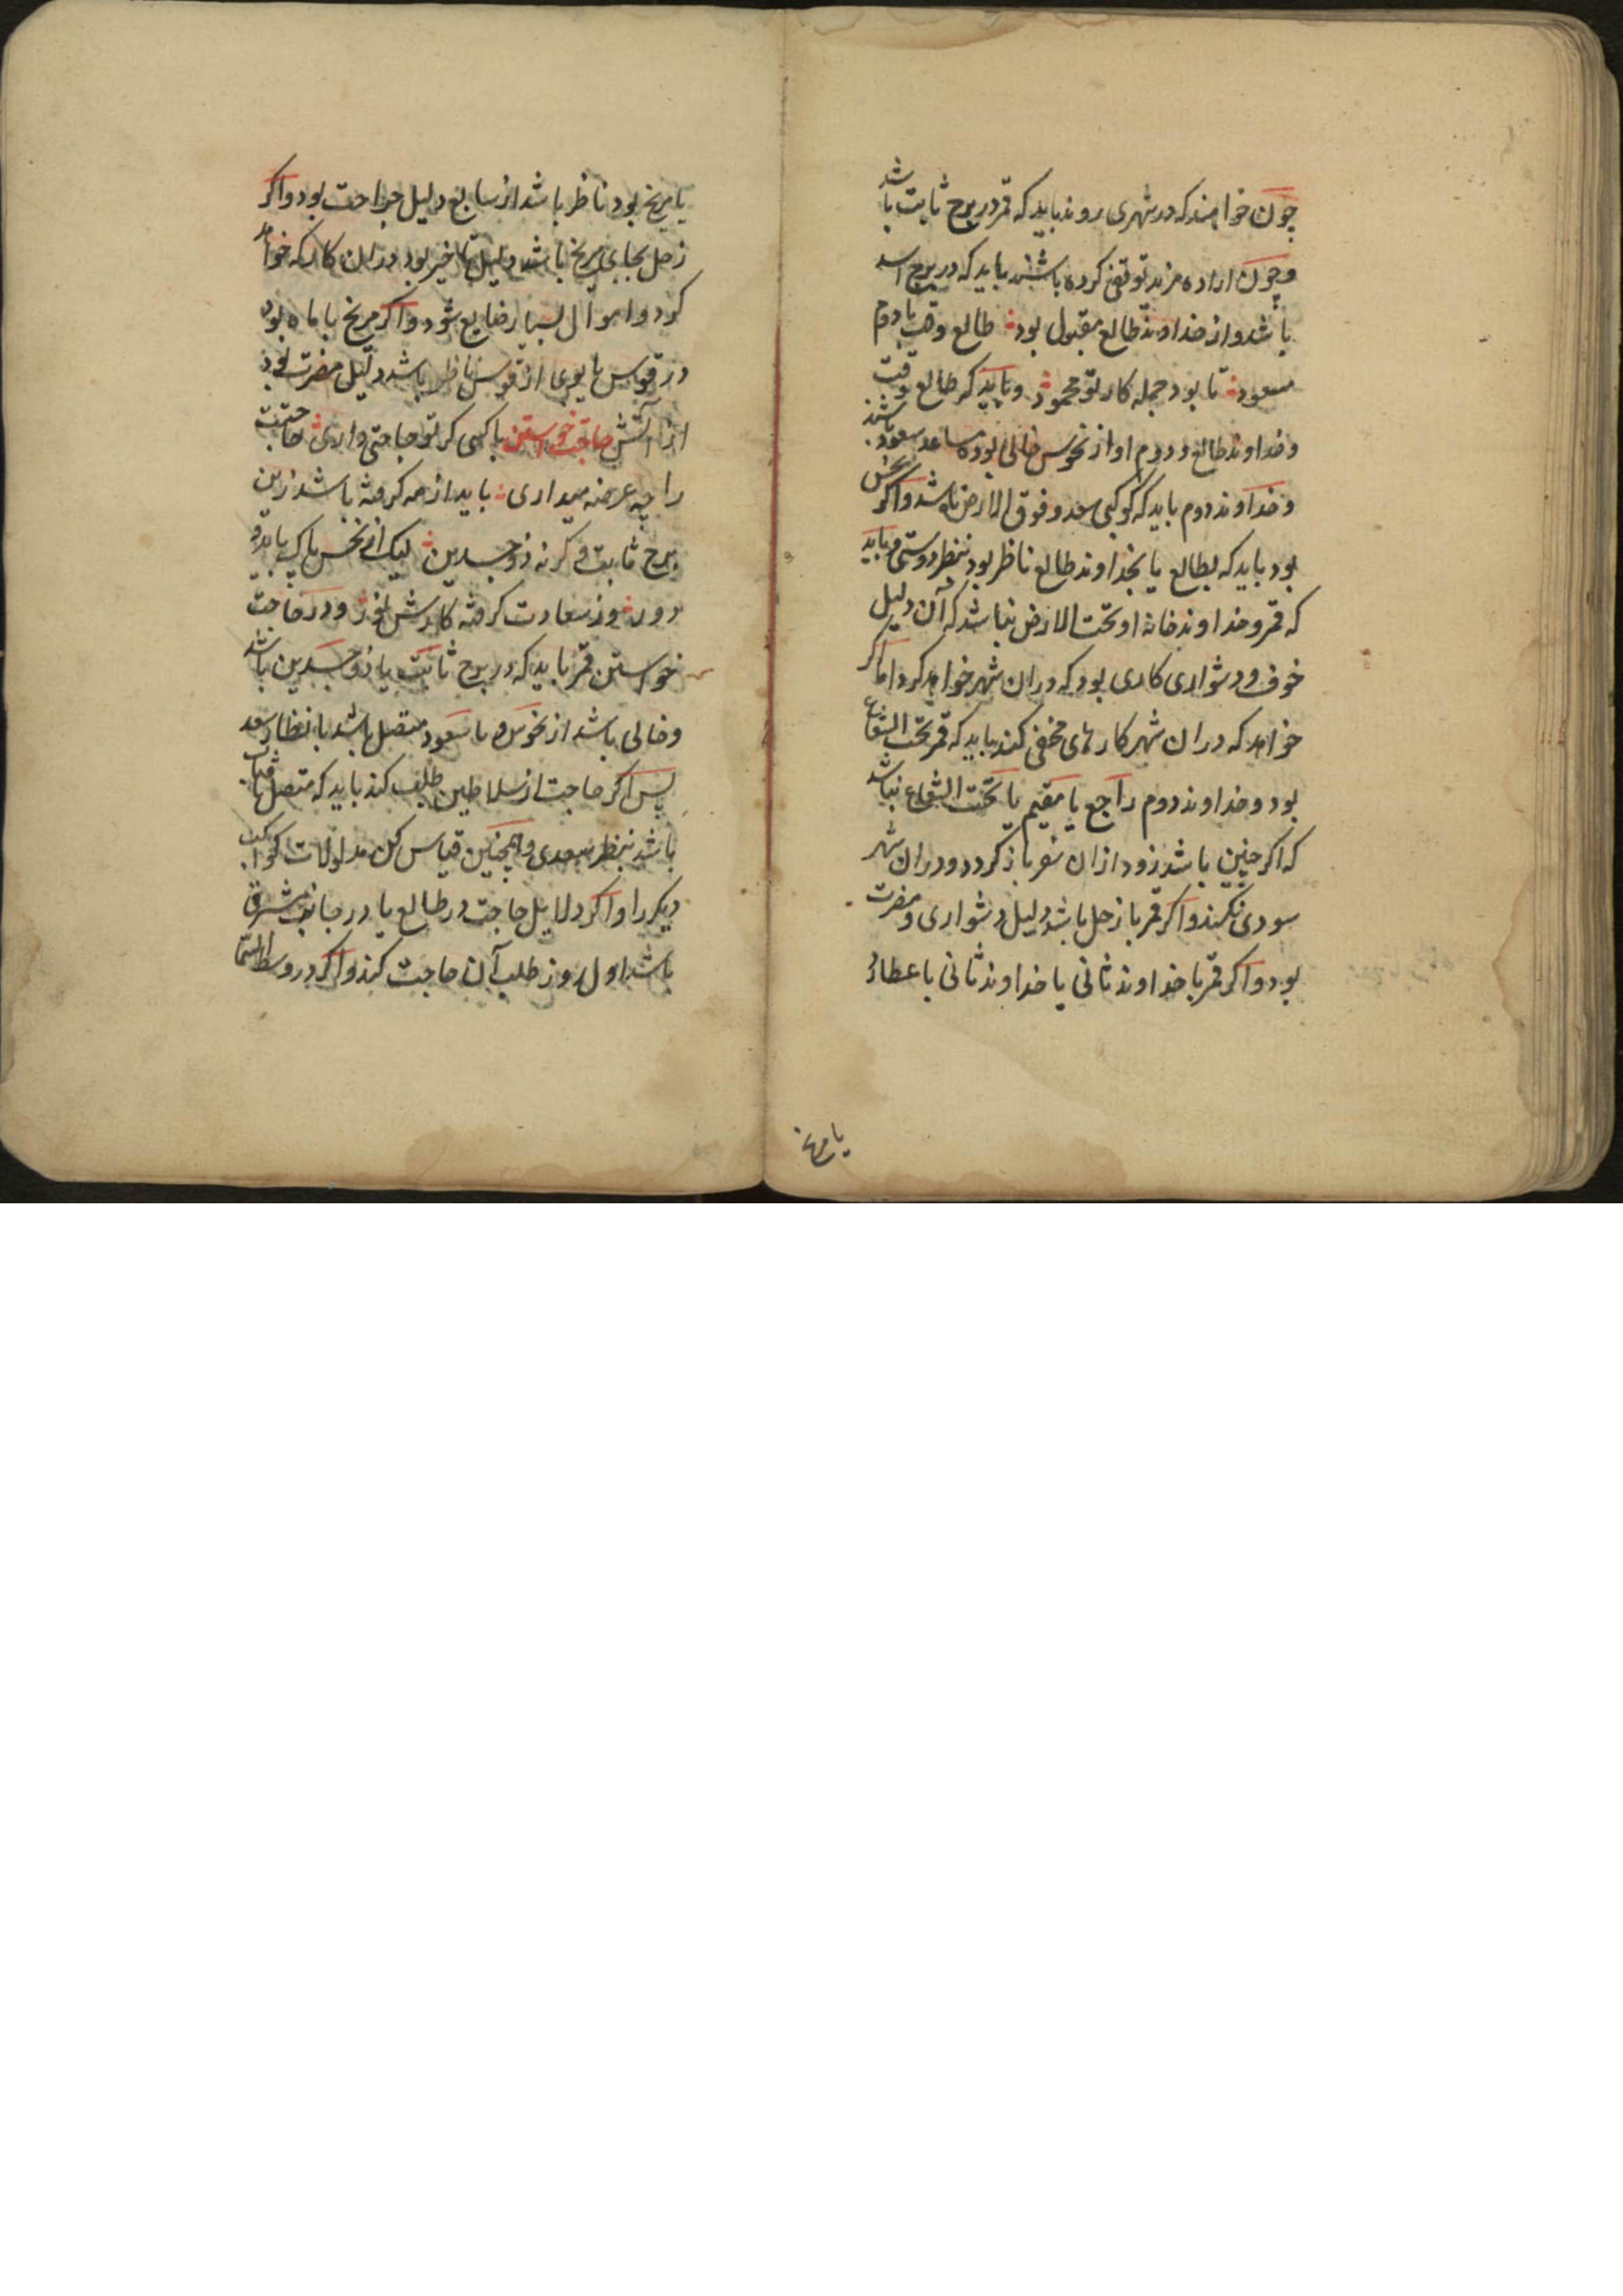 چون خواهند که در شهری روند باید که قمر در برج ثابت باشد
و چون اراده مزید توقفی کرده باشند باید که در برج اسد
باشد و از خداوند طالع مقبول بود طالع وقت با دوم
مسعود تا بود جمله کار تو محمود و باید که طالع وقت
و خداوند طالع و دوم او از نحوس خالی بوده مساعد سعود باشند
و خداوند دوم باید که کوکبی سعد و فوق الارض باشد و اکر نحس
بود باید که بطالع یا بخداوند طالع ناظر بود بنظر دوستی و باید
که قمر و خداوند خانه او تحت الارض نباشد که آن دلیل
خوف و دشواری کاری بود که در ان شهر خواهد کرد اما اکر
خواهد که در ان شهر کارهای مخفی کند باید که قمر تحت الشعاع
بود و خداوند دوم راجع یا مقیم یا تحت الشعاع نباشد
که اکر چنین باشد زود از ان سفر باز کردد و در ان شهر
سودی نکند و اکر قمر با زحل باشد دلیل دشواری و مضرت
بود و اکر قمر با خداوند ثانی یا خداوند ثانی با عطارد
یا مریخ
یا مریخ بود ناظر باشد از سابع دلیل جراحت بود و اکر
زحل بجای مریخ باشد دلیل تاخیر بود در ان کار که خواهد
کرد و اموال بسیار ضایع شود و اکر مریخ با ماه بود
در قوس یا بوی از قوس ناظر باشد دلیل مضرت بود
از آتش حاجت خواستن با کسی کر تو حاجتی داری حاجتت
را چه عرضه میداری باید از مه کرفته باشد زین
برج ثابت و کر نه ذو جسدین لیک از نحس پاک باید و
دور وز سعادت کرفته کارش نور و در حاجت
خواستن قمر باید که در برج ثابت یا ذو جسدین باشد
و خالی باشد از نحوس و با سعود متصل باشد بانظار سعد
پس اکر حاجت از سلاطین طلب کند باید که متصل بآفتاب
باشد بنظر سعدی و همچنین قیاس کن مدلولات کواکب
دیکر را و اکر دلایل حاجت در طالع یا در جانب مشرق
باشد اول روز طلب آن حاجت کند و اکر در وسط السما